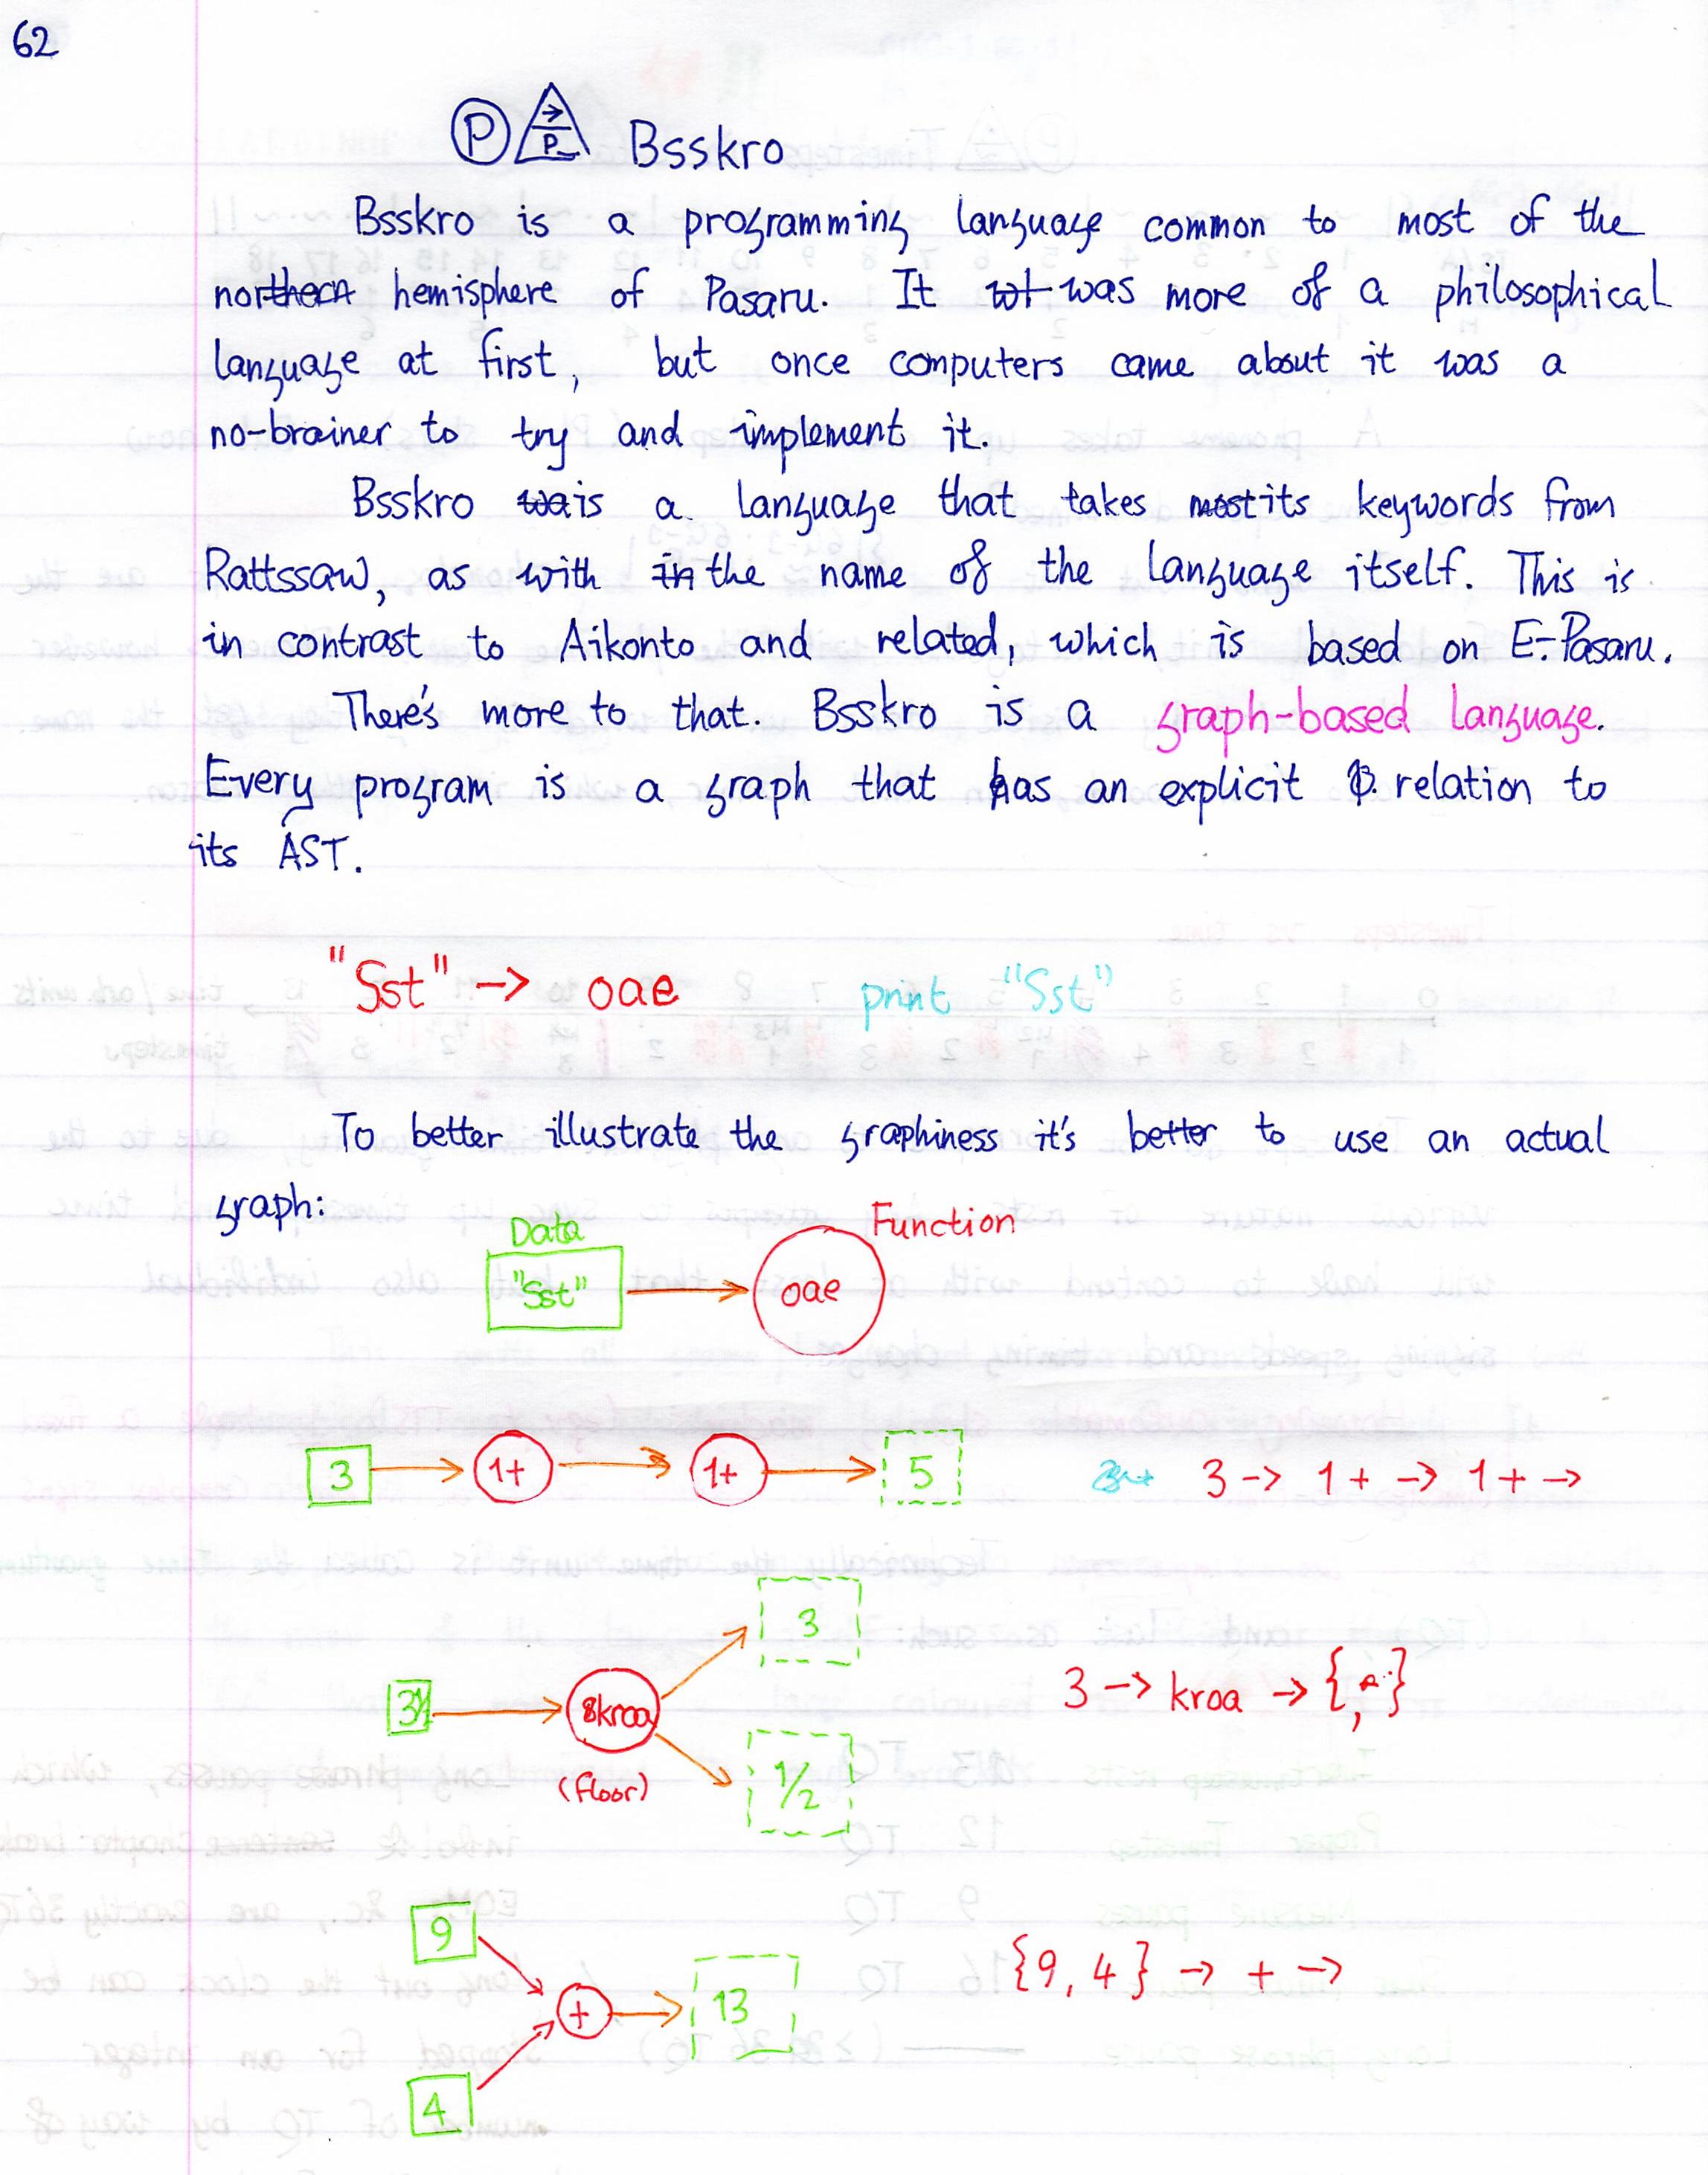 62
P → P Bsskro
Bsskro is a programming language common to most of the
northern hemisphere of Pasaru. It was more of a philosophical
language at first, but once computers came about it was a
no-brainer to try and implement it.
Bsskro is a language that takes its keywords from
Rattssaw, as with the name of the language itself. This is
in contrast to Aikonto and related, which is based on E-Pasaru.
There's more to that. Bsskro is a graph-based language.
Every program is a graph that has an explicit relation to
its AST.
"Sst" → oae print "Sst"
To better illustrate the graphiness it's better to use an actual
graph:
Data Function
"Sst" → oae
3 → 1+ → 1+ → 5 3 → 1+ → 1+ →
3
kroa 3 → kroa → { , }
(floor)
1/2
9
+ → 13 {9, 4} → + →
4